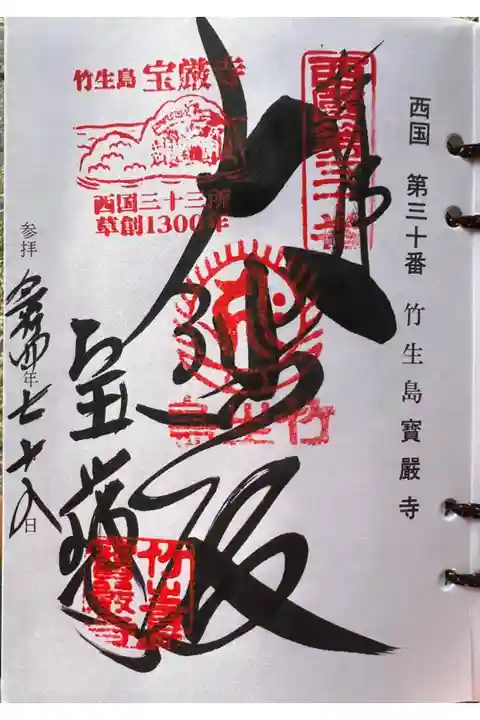 西国 第三十番 竹生島寶嚴寺
西國第三十番
竹生島 宝厳寺
西国三十三所
草創1300年
大悲殿
竹生島
宝厳寺
参拝 令和四年七 十八日